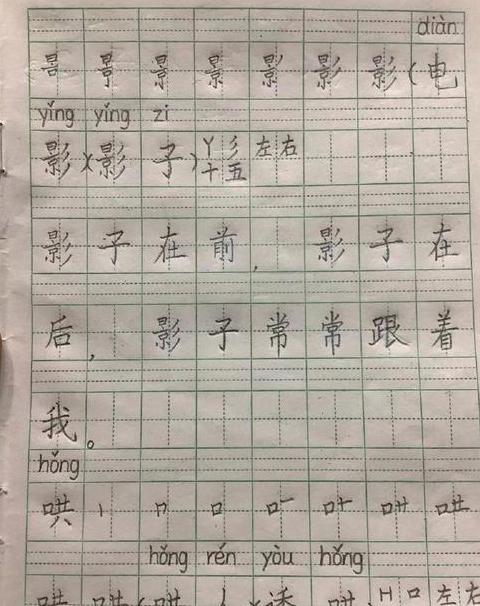 diàn
影 影 影 (电
yǐng yǐng zi
影)(影 子) 彡 十五 左右
影子在前, 影子在
后, 影子常常跟着
我。
hǒng
哄 丨 口
hǒng rén yòu hǒng
哄 哄 (哄 人)(诱 哄 口 左右